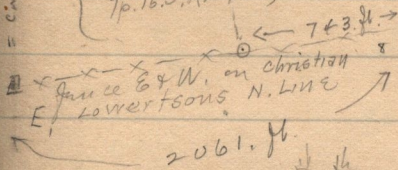 743. ft.
8
fence E & W. on christian
Lowertsons N. Line
E,
2061. ft.